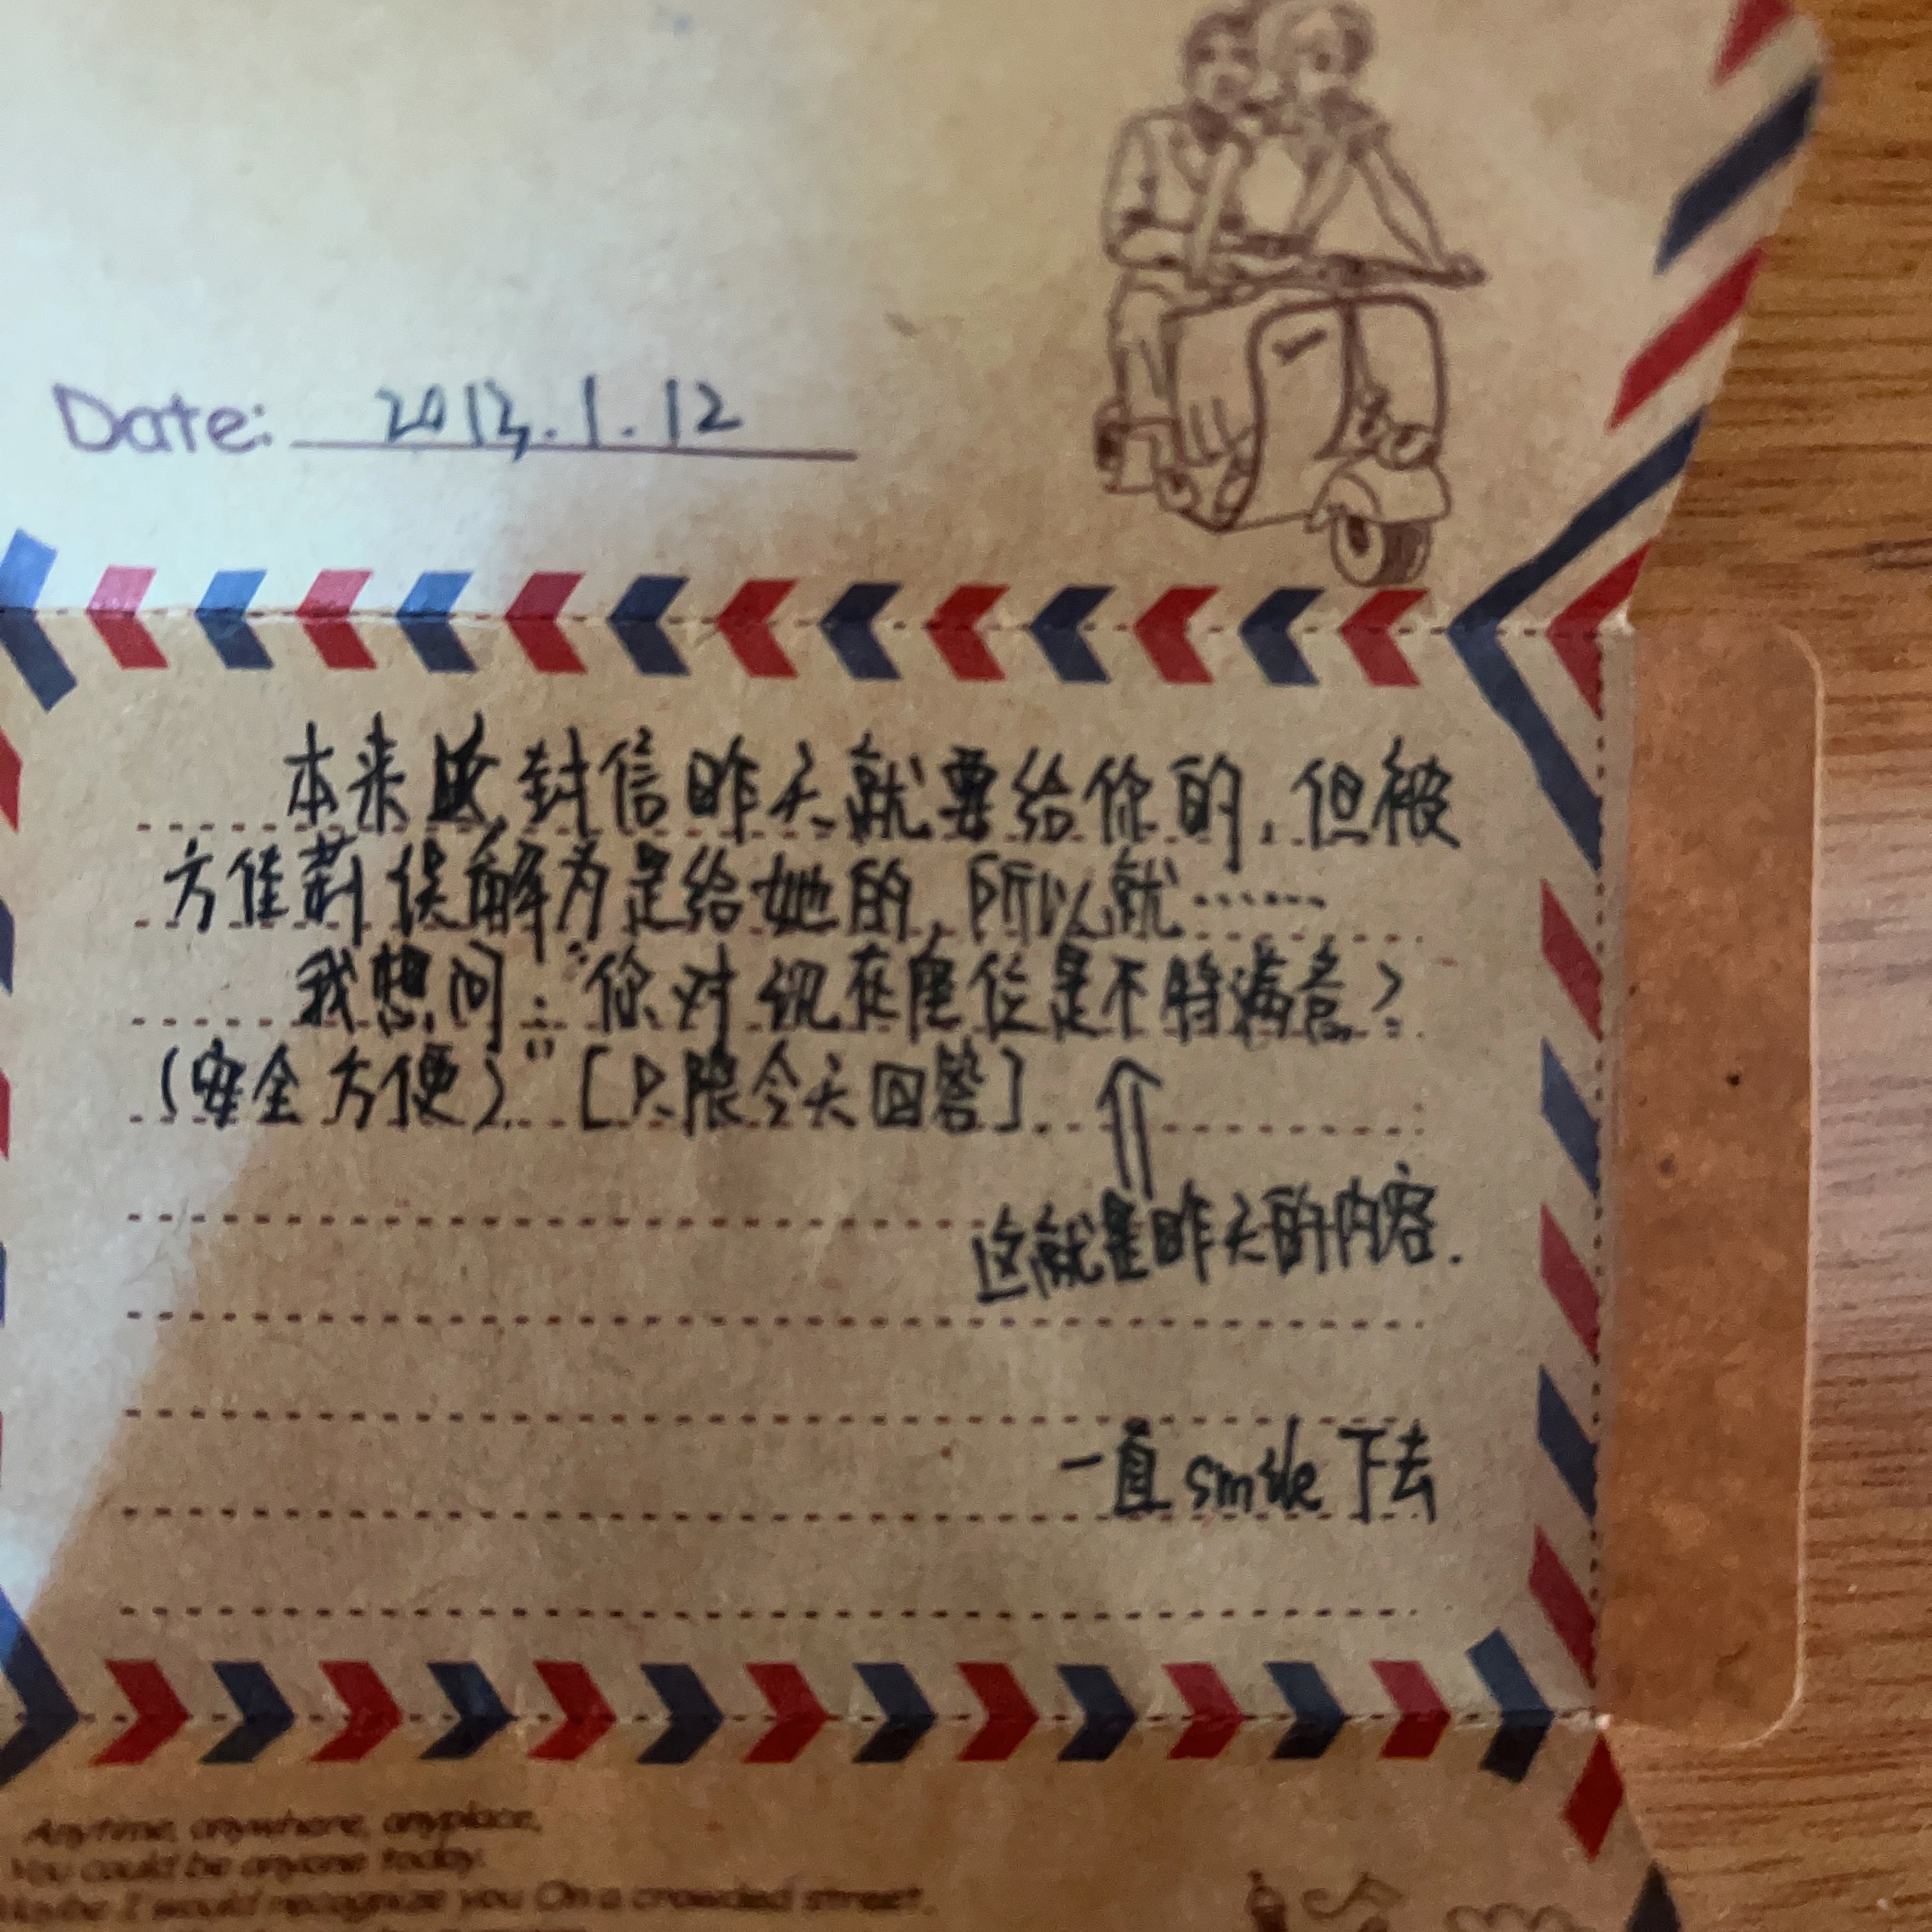 Date: 2013.1.12
本来此封信昨天就要给你的,但被
方佳莉误解为是给她的,所以就……
我想问:“你对现在座位是不特满意?
(安全方便)”[只限今天回答].
这就是昨天的内容.
一直smile下去
Anytime, anywhere, anyplace,
You could be anyone today.
Maybe I would recognize you On a crowded street,